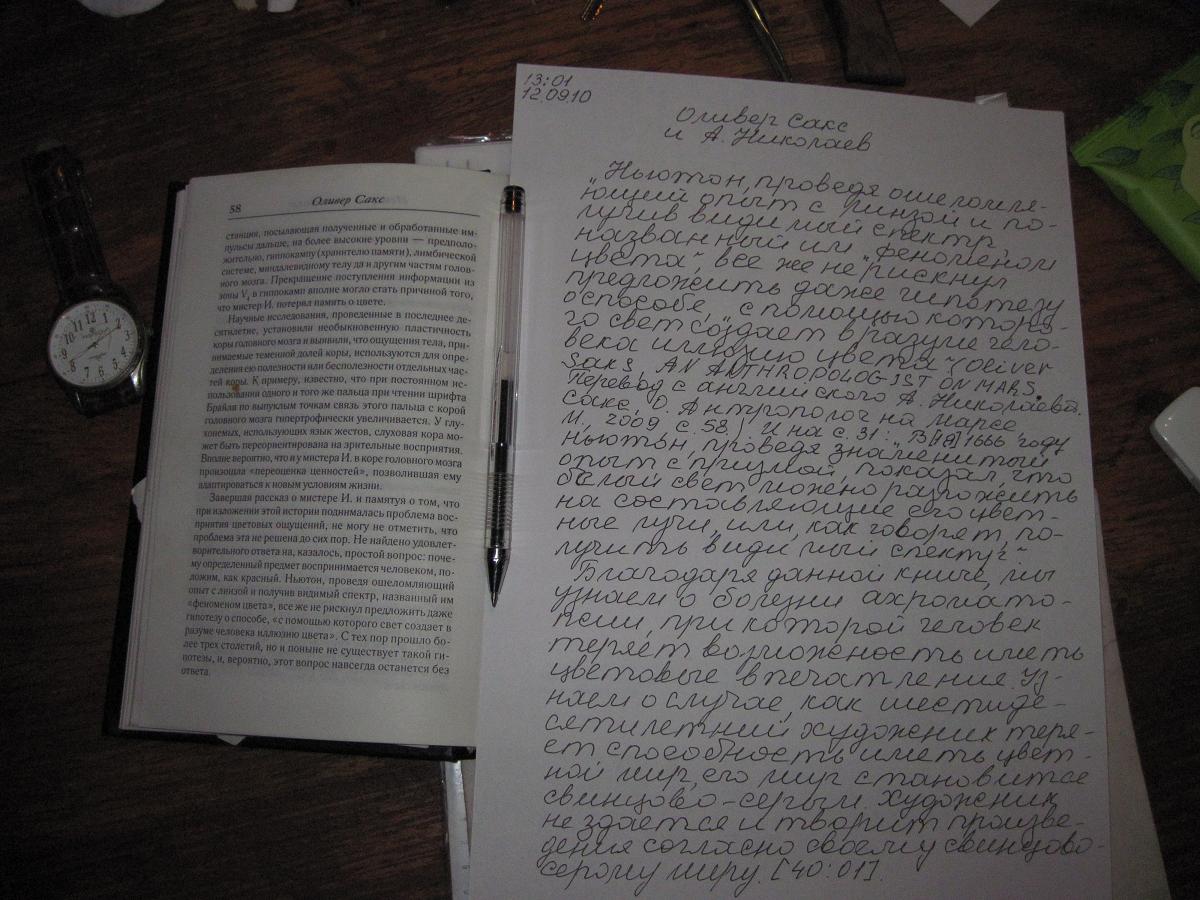 58
Оливер Сакс
станция, посылающая полученные и обработанные им-
пульсы дальше, на более высокие уровни — предполо-
жительно, гиппокампу (хранителю памяти), лимбической
системе, миндалевидному телу да и другим частям голов-
ного мозга. Прекращение поступления информации из
зоны V₄ в гиппокамп вполне могло стать причиной того,
что мистер И. потерял память о цвете.
Научные исследования, проведенные в последнее де-
сятилетие, установили необыкновенную пластичность
коры головного мозга и выявили, что ощущения тела, при-
нимаемые теменной долей коры, используются для опре-
деления ею полезности или бесполезности отдельных час-
тей коры. К примеру, известно, что при постоянном ис-
пользовании одного и того же пальца при чтении шрифта
Брайля по выпуклым точкам связь этого пальца с корой
головного мозга гипертрофически увеличивается. У глу-
хонемых, использующих язык жестов, слуховая кора мо-
жет быть переориентирована на зрительные восприятия.
Вполне вероятно, что и у мистера И. в коре головного мозга
произошла «переоценка ценностей», позволившая ему
адаптироваться к новым условиям жизни.
Завершая рассказ о мистере И. и памятуя о том, что
при изложении этой истории поднималась проблема вос-
приятия цветовых ощущений, не могу не отметить, что
проблема эта не решена до сих пор. Не найдено удовлет-
ворительного ответа на, казалось, простой вопрос: поче-
му определенный предмет воспринимается человеком, по-
ложим, как красный. Ньютон, проведя ошеломляющий
опыт с линзой и получив видимый спектр, названный им
«феноменом цвета», все же не рискнул предложить даже
гипотезу о способе, «с помощью которого свет создает в
разуме человека иллюзию цвета». С тех пор прошло бо-
лее трех столетий, но и поныне не существует такой ги-
потезы, и, вероятно, этот вопрос навсегда останется без
ответа.
13:01
12.09.10
Оливер Сакс
и А. Николаев
„Ньютон, проведя ошеломля-
ющий опыт с линзой и по-
лучив видимый спектр,
названный им „феноменом
цвета“, все же не рискнул
предложить даже гипотезу
о способе, „с помощью которо-
го свет создает в разуме чело-
века иллюзию цвета“ (Oliver
Saks, AN ANTHROPOLOGIST ON MARS.
Перевод с английского А. Николаева.
Сакс, О. Антрополог на Марсе
М., 2009 с. 58). И на с. 31: „В 1666 году
Ньютон, проведя знаменитый
опыт с призмой, показал, что
белый свет можно разложить
на составляющие его цвет-
ные лучи, или, как говорят, по-
лучить „видимый спектр“.
Благодаря данной книге, мы
узнаем о болезни ахромато-
псии, при которой человек
теряет возможность иметь
цветовые впечатления. Уз-
наем о случае, как шестиде-
сятилетний художник теря-
ет способность иметь цвет-
ной мир, его мир становится
свинцово-серым. Художник
не здается и творит произве-
дения согласно своему свинцово-
серому миру. [40:01].